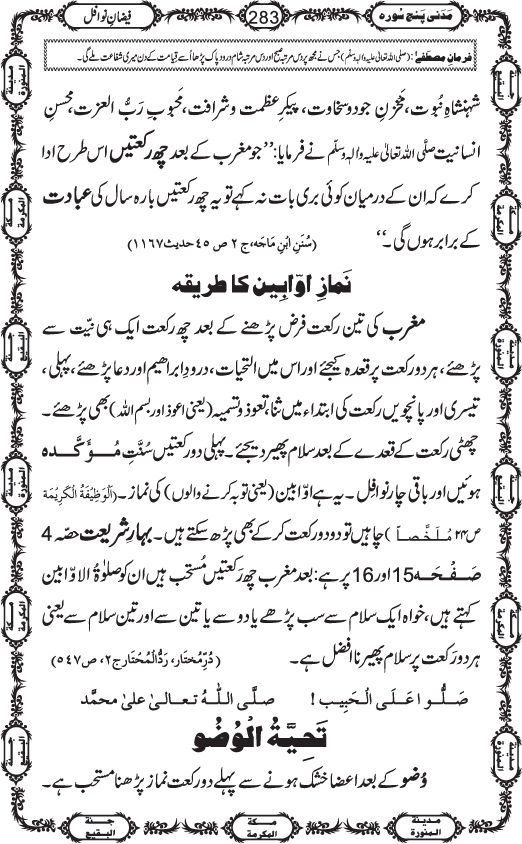 مَدَنی پنج سُورہ 283 فیضانِ نوافل
فرمانِ مصطَفٰے: (صلی اللہ تعالیٰ علیہ والہٖ وسلم) جس نے مجھ پر دس مرتبہ صبح اور دس مرتبہ شام درود پاک پڑھا اُسے قیامت کے دن میری شفاعت ملے گی۔
شہنشاہِ نُبوت، مَخْزنِ جود وسخاوت، پیکرِ عظمت و شرافت، مَحبوبِ رَبُّ العزت، محسنِ
انسانیت صلَّی اللہ تعالیٰ علیہ والہٖ وسلَّم نے فرمایا: ”جو مغرب کے بعد چھ رکعتیں اس طرح ادا
کرے کہ ان کے درمیان کوئی بری بات نہ کہے تو یہ چھ رکعتیں بارہ سال کی عبادت
کے برابر ہوں گی۔“ (سُنَنِ ابنِ ماجَہ، ج ۲ ص ۴۵ حدیث ۱۱۶۷)
نَمازِ اوّابین کا طریقہ
مغرب کی تین رکعت فرض پڑھنے کے بعد چھ رکعت ایک ہی نیّت سے
پڑھئے، ہر دو رکعت پر قعدہ کیجئے اور اس میں التحیات، درودِ ابراھیم اور دعا پڑھئے، پہلی،
تیسری اور پانچویں رکعت کی ابتداء میں ثنا، تعوذ و تسمیہ (یعنی اعوذ اور بسم اللہ) بھی پڑھئے۔
چھٹی رکعت کے قعدے کے بعد سلام پھیر دیجئے۔ پہلی دو رکعتیں سُنّتِ مُؤَکَّدہ
ہوئیں اور باقی چار نوافِل۔ یہ ہے اوابین (یعنی توبہ کرنے والوں) کی نماز۔ (اَلْوَظِیْفَۃُ الْکَرِیْمَۃ
ص ۲۴ مُلَخَّصاً) چاہیں تو دو دو رکعت کر کے بھی پڑھ سکتے ہیں۔ بہارِ شریعت حصّہ 4
صَفْحَہ 15 اور 16 پر ہے: بعد مغرب چھ رکعتیں مُستحب ہیں ان کو صلٰوۃُ الاوّابین
کہتے ہیں، خواہ ایک سلام سے سب پڑھے یا دو سے یا تین سے اور تین سلام سے یعنی
ہر دو رکعت پر سلام پھیرنا افضل ہے۔ (دُرِّمختار، ردُّالمُحتار ج ۲، ص ۵۴۷)
صَلُّوا عَلَی الْحَبِیب! صلَّی اللہُ تعالیٰ علیٰ محمَّد
تَحِیَّۃُ الْوُضُو
وُضو کے بعد اعضا خشک ہونے سے پہلے دو رکعت نماز پڑھنا مستحب ہے۔
مدینۃ المنورۃ
جنۃ البقیع
مکۃ المکرمۃ
مکۃ المکرمۃ
جنۃ البقیع
مدینۃ المنورۃ
مدینۃ المنورۃ
جنۃ البقیع
مکۃ المکرمۃ
مکۃ المکرمۃ
جنۃ البقیع
مدینۃ المنورۃ
جنۃ البقیع
مکۃ المکرمۃ
مدینۃ المنورۃ